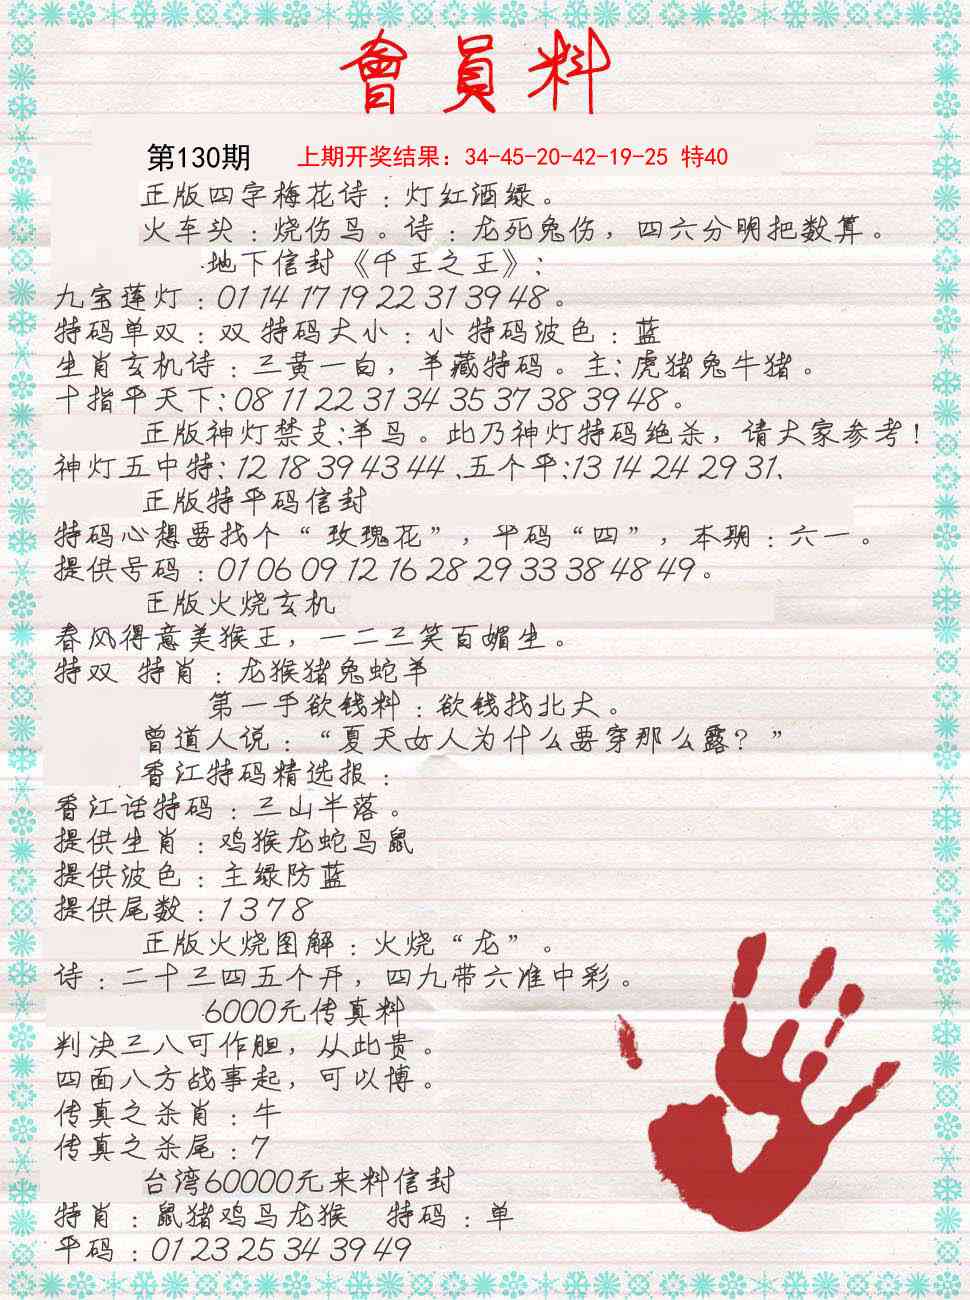 會員料
第130期 上期开奖结果：34-45-20-42-19-25 特40
正版四字梅花诗：灯红酒绿。
火车头：烧伤鸟。诗：龙死兔伤，四六分明把数算。
地下信封《千王之王》：
九宝莲灯：01 14 17 19 22 31 39 48。
特码单双：双 特码大小：小 特码波色：蓝
生肖玄机诗：三黄一白，羊藏特码。主：虎猪兔牛猪。
十指平天下：08 11 22 31 34 35 37 38 39 48。
正版神灯禁支：羊马。此乃神灯特码绝杀，请大家参考！
神灯五中特：12 18 39 43 44、五个平：13 14 24 29 31、
正版特平码信封
特码心想要找个“玫瑰花”，平码“四”，本期：六一。
提供号码：01 06 09 12 16 28 29 33 38 48 49。
正版火烧玄机
春风得意美猴王，一二三笑百媚生。
特双 特肖：龙猴猪兔蛇羊
第一手欲钱料：欲钱找北大。
曾道人说：“夏天女人为什么要穿那么露？”
香江特码精选报：
香江话特码：三山半落。
提供生肖：鸡猴龙蛇马鼠
提供波色：主绿防蓝
提供尾数：1 3 7 8
正版火烧图解：火烧“龙”。
诗：二十三四五个开，四九带六准中彩。
6000元传真料
判决三八可作胆，从此贵。
四面八方战事起，可以博。
传真之杀肖：牛
传真之杀尾：7
台湾60000元来料信封
特肖：鼠猪鸡马龙猴 特码：单
平码：01 23 25 34 39 49